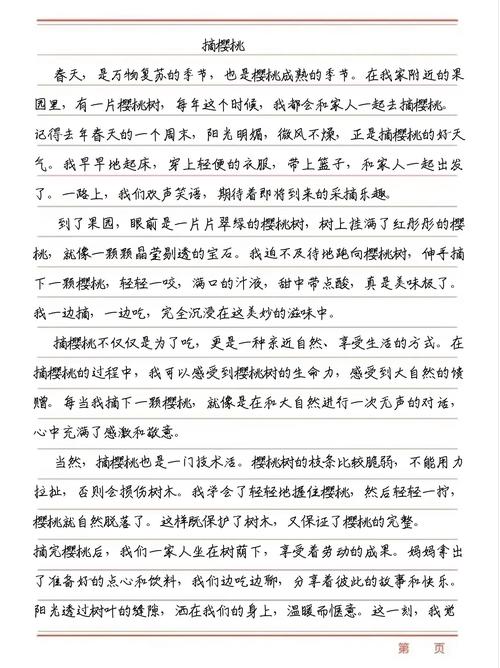 摘樱桃
春天,是万物复苏的季节,也是樱桃成熟的季节。在我家附近的果
园里,有一片樱桃树,每年这个时候,我都会和家人一起去摘樱桃。
记得去年春天的一个周末,阳光明媚,微风不燥,正是摘樱桃的好天
气。我早早地起床,穿上轻便的衣服,带上篮子,和家人一起出发
了。一路上,我们欢声笑语,期待着即将到来的采摘乐趣。
到了果园,眼前是一片片翠绿的樱桃树,树上挂满了红彤彤的樱
桃,就像一颗颗晶莹剔透的宝石。我迫不及待地跑向樱桃树,伸手摘
下一颗樱桃,轻轻一咬,满口的汁液,甜中带点酸,真是美味极了。
我一边摘,一边吃,完全沉浸在这美妙的滋味中。
摘樱桃不仅仅是为了吃,更是一种亲近自然、享受生活的方式。在
摘樱桃的过程中,我可以感受到樱桃树的生命力,感受到大自然的馈
赠。每当我摘下一颗樱桃,就像是在和大自然进行一次无声的对话,
心中充满了感激和敬意。
当然,摘樱桃也是一门技术活。樱桃树的枝条比较脆弱,不能用力
拉扯,否则会损伤树木。我学会了轻轻地握住樱桃,然后轻轻一拧,
樱桃就自然脱落了。这样既保护了树木,又保证了樱桃的完整。
摘完樱桃后,我们一家人坐在树荫下,享受着劳动的成果。妈妈拿出
了准备好的点心和饮料,我们边吃边聊,分享着彼此的故事和快乐。
阳光透过树叶的缝隙,洒在我们的身上,温暖而惬意。这一刻,我觉
第 页